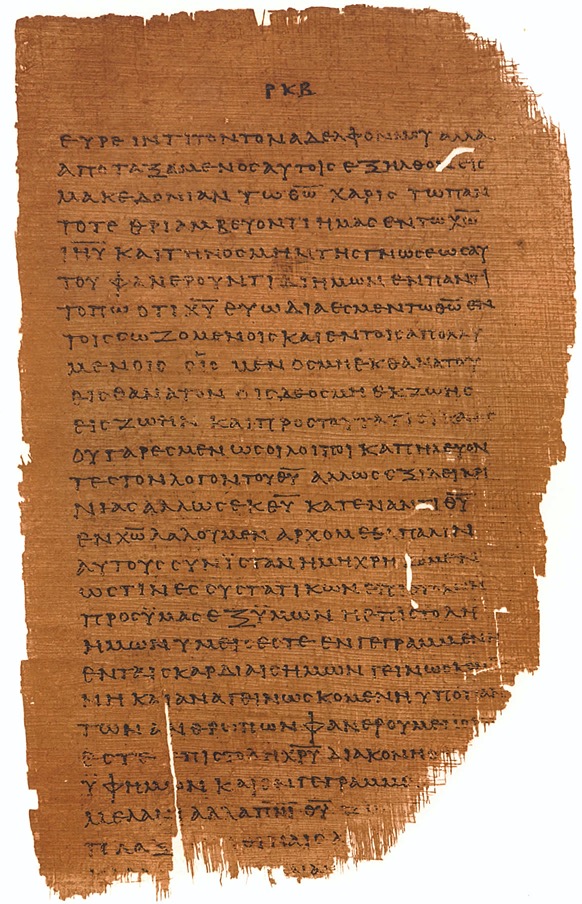 ΡΚΒ
ΕΥΡΕΙΝ ΤΙΤΟΝ ΤΟΝ ΑΔΕΛΦΟΝ ΜΟΥ ΑΛΛΑ
ΑΠΟΤΑΞΑΜΕΝΟϹ ΑΥΤΟΙϹ ΕΞΗΛΘΟΝ ΕΙϹ
ΜΑΚΕΔΟΝΙΑΝ ΤΩ Θ̅Ω̅ ΧΑΡΙϹ ΤΩ ΠΑΝ
ΤΟΤΕ ΘΡΙΑΜΒΕΥΟΝΤΙ ΗΜΑϹ ΕΝ ΤΩ Χ̅Ω̅
Ι̅Η̅Υ̅ ΚΑΙ ΤΗΝ ΟϹΜΗΝ ΤΗϹ ΓΝΩϹΕΩϹ ΑΥ
ΤΟΥ ΦΑΝΕΡΟΥΝΤΙ ΔΙ ΗΜΩΝ ΕΝ ΠΑΝΤΙ
ΤΟΠΩ ΟΤΙ Χ̅Υ̅ ΕΥΩΔΙΑ ΕϹΜΕΝ ΤΩ Θ̅Ω̅ ΕΝ
ΤΟΙϹ ϹΩΖΟΜΕΝΟΙϹ ΚΑΙ ΕΝ ΤΟΙϹ ΑΠΟΛΛΥ
ΜΕΝΟΙϹ ΟΙϹ ΜΕΝ ΟϹΜΗ ΕΚ ΘΑΝΑΤΟΥ
ΕΙϹ ΘΑΝΑΤΟΝ ΟΙϹ ΔΕ ΟϹΜΗ ΕΚ ΖΩΗϹ
ΕΙϹ ΖΩΗΝ ΚΑΙ ΠΡΟϹ ΤΑΥΤΑ ΤΙϹ ΙΚΑΝΟϹ
ΟΥ ΓΑΡ ΕϹΜΕΝ ΩϹ ΟΙ ΛΟΙΠΟΙ ΚΑΠΗΛΕΥΟΝ
ΤΕϹ ΤΟΝ ΛΟΓΟΝ ΤΟΥ Θ̅Υ̅ ΑΛΛ ΩϹ ΕΞ ΙΛΕΙΚΡΙ
ΝΙΑϹ ΑΛΛ ΩϹ ΕΚ Θ̅Υ̅ ΚΑΤΕΝΑΝΤΙ Θ̅Υ̅
ΕΝ Χ̅Ω̅ ΛΑΛΟΥΜΕΝ ΑΡΧΟΜΕΘΑ ΠΑΛΙΝ
ΑΥΤΟΥϹ ϹΥΝΪϹΤΑΝ Η ΜΗ ΧΡΗΖΟΜΕΝ
ΩϹ ΤΙΝΕϹ ϹΥϹΤΑΤΙΚΩΝ ΕΠΙϹΤΟΛΩΝ
ΠΡΟϹ ΫΜΑϹ Ε ΞΥΜΩΝ Η ΕΠΙϹΤΟΛΗ
ΗΜΩΝ ΥΜΕΙϹ ΕϹΤΕ ΕΝΓΕΓΡΑΜΜΕΝΗ
ΕΝ ΤΑΙϹ ΚΑΡΔΙΑΙϹ ΗΜΩΝ ΓΕΙΝΩϹΚΟΜΕ
ΝΗ ΚΑΙ ΑΝΑΓΕΙΝΩϹΚΟΜΕΝΗ ΥΠΟ ΠΑΝ
ΤΩΝ ΑΝΘΡΩΠΩΝ ΦΑΝΕΡΟΥΜΕΝΟΙ
ΕϹΤΕ ΕΠΙϹΤΟΛΗ Χ̅Ρ̅Υ̅ ΔΙΑΚΟΝΗ
ΫΦ ΗΜΩΝ ΚΑΙ ΕΝΓΕΓΡΑΜΜΕ
ΜΕΛΑΝΙ ΑΛΛΑ Π̅Ν̅Ι̅ Θ̅Υ̅
ΠΛΑΞ